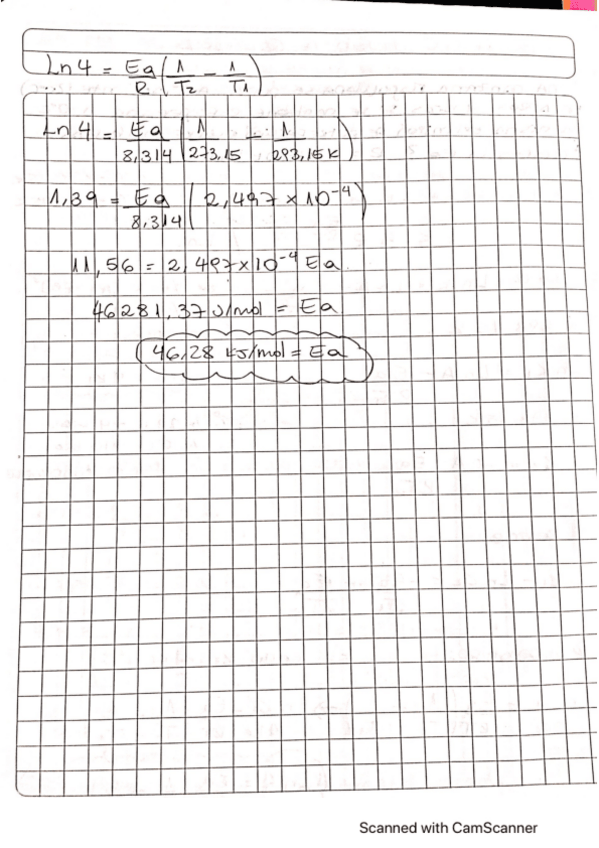 Ln 4 = Ea/R (1/T2 - 1/T1)
Ln 4 = Ea/8,314 (1/273,15 - 1/293,15K)
1,39 = Ea/8,314 (2,497 × 10⁻⁴)
11,56 = 2,497×10⁻⁴ Ea
46281,37 J/mol = Ea
46,28 KJ/mol = Ea
Scanned with CamScanner